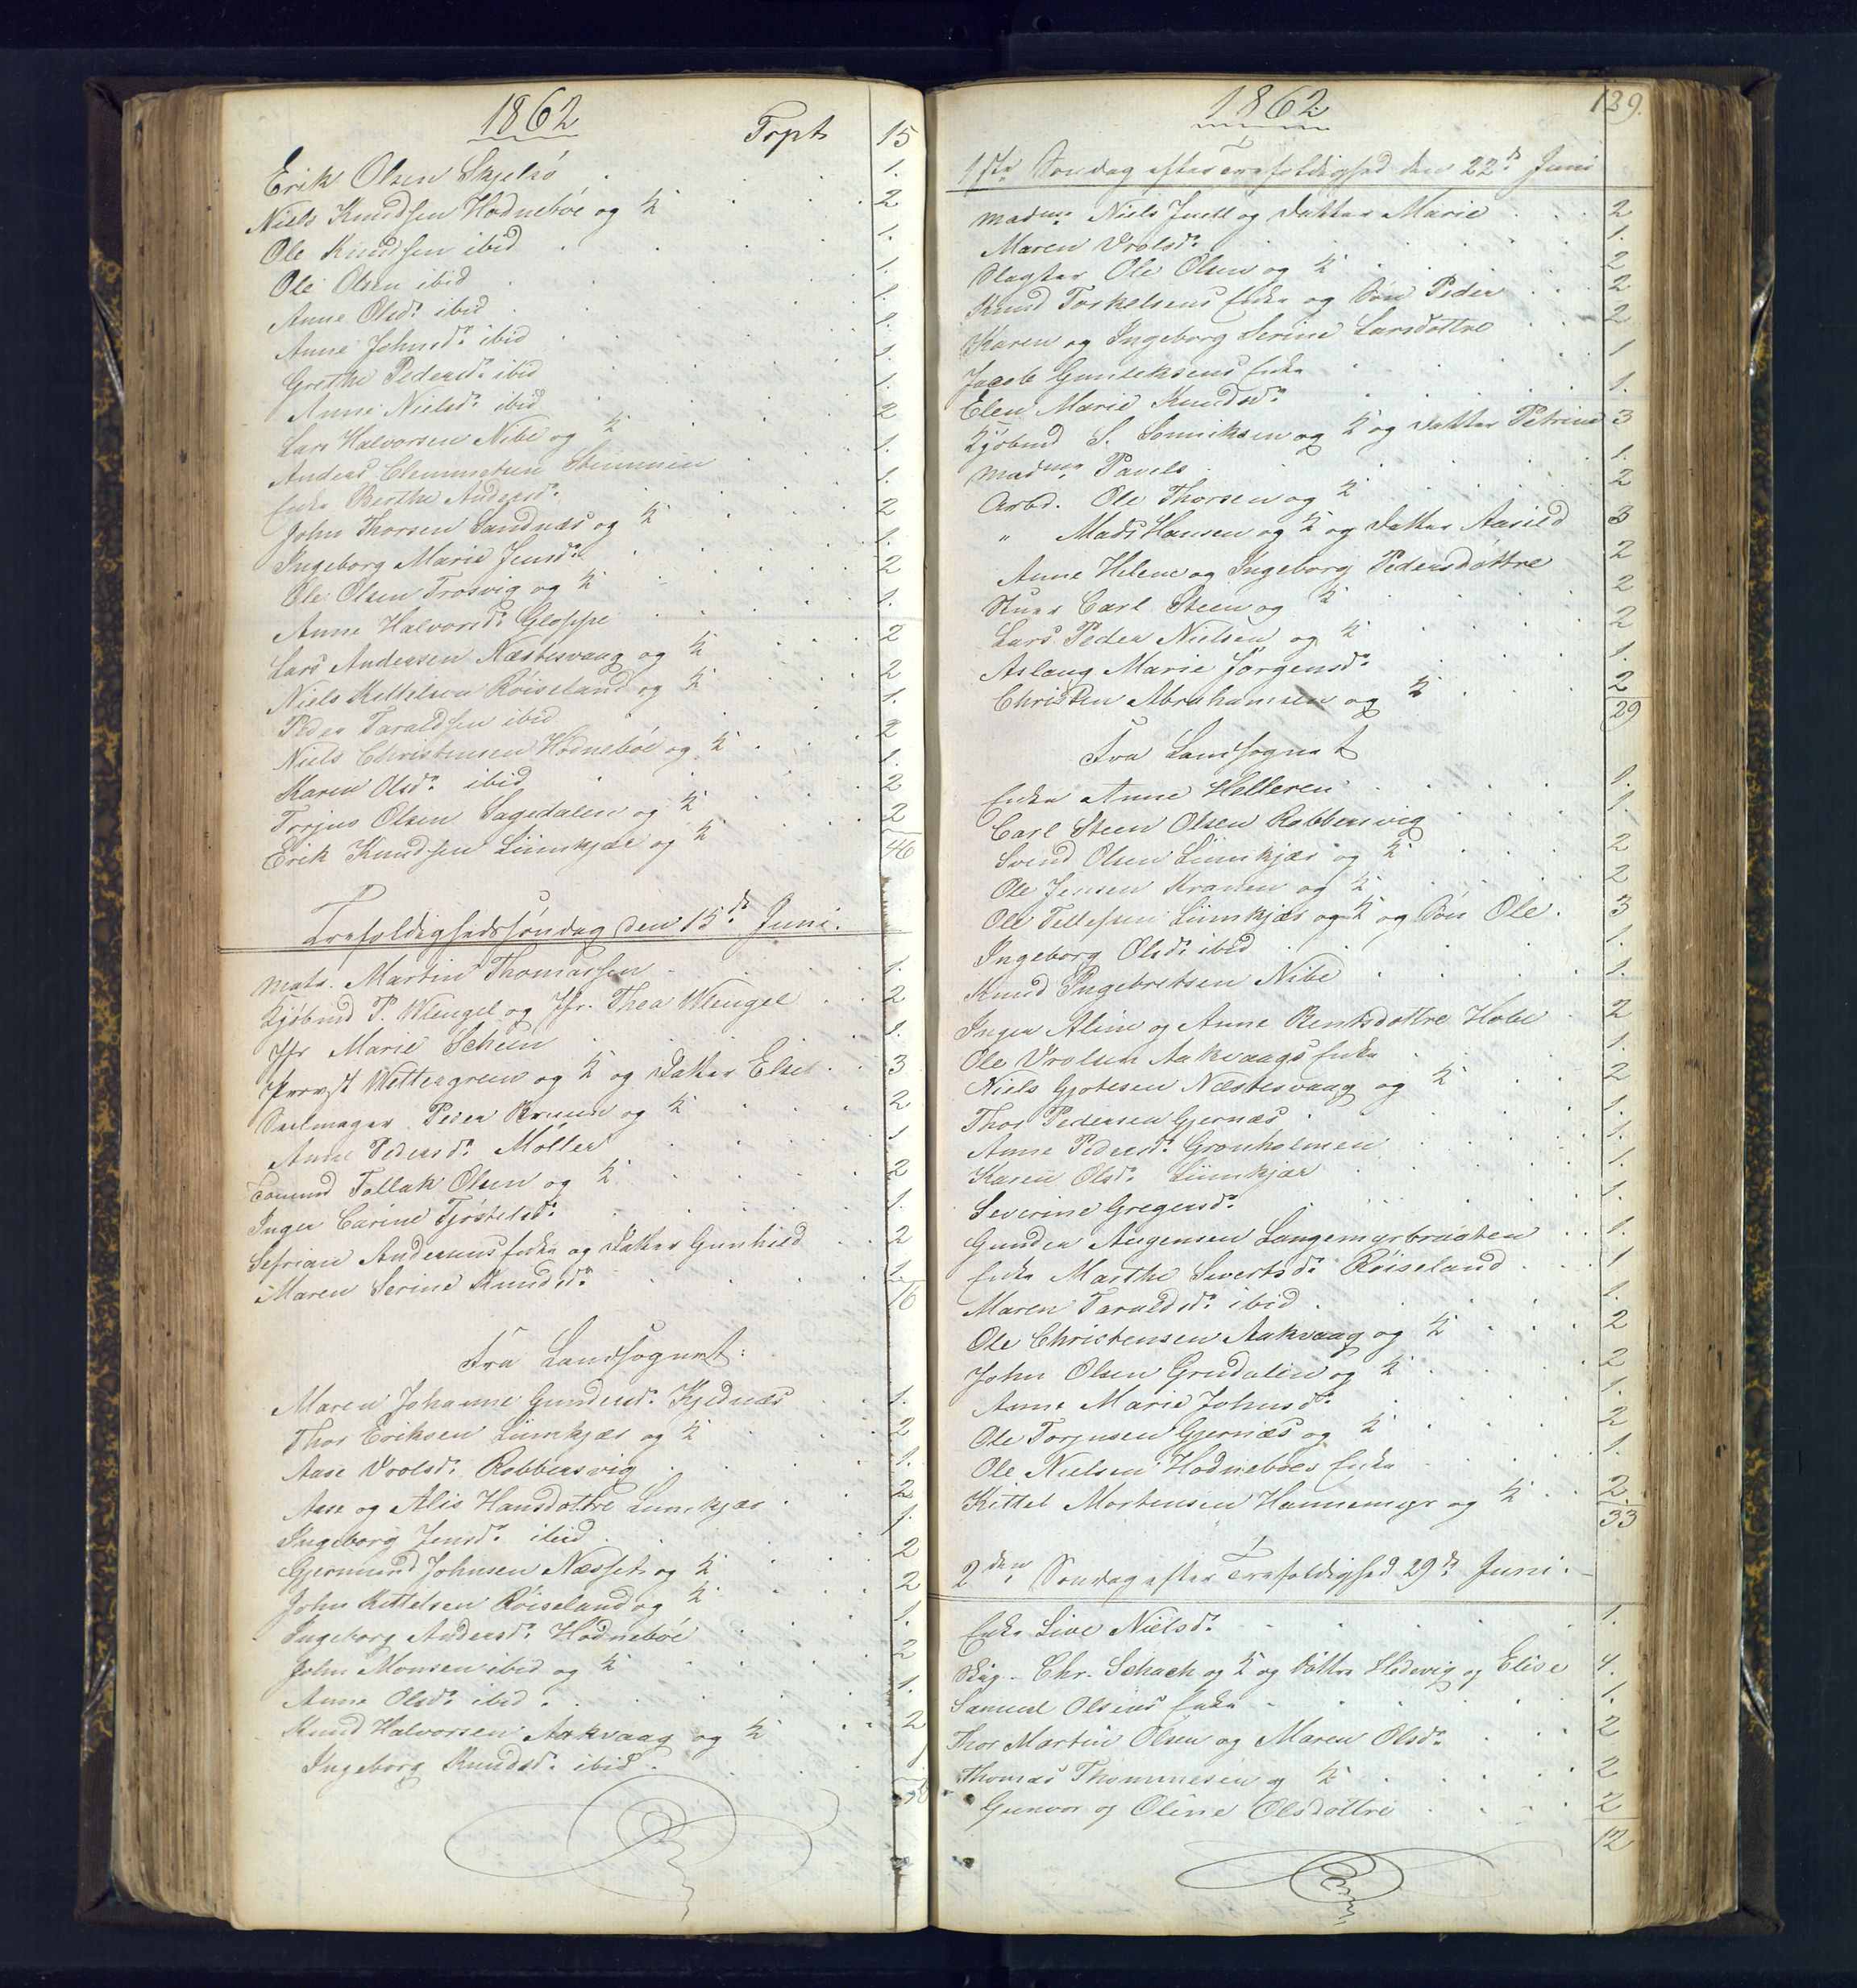 1862
Trpt 15
Erik Olsen Skjelsö . . . 1.
Niels Knudsen Hodneböe og K . . . 2
Ole Knudsen ibid . . . 1.
Ole Olsen ibid . . . 1.
Anne Olsdr ibid . . . 1.
Anne Johnsdr ibid . . . 1.
Grethe Pedersdr ibid . . . 1.
Anne Nielsdr ibid . . . 1.
Lars Halvorsen Nibe og K . . . 2
Anders Clemmetsen Stemmen . . . 1.
Enke Berthe Andersdr . . . 1.
John Thorsen Sandnæs og K . . . 2
Ingeborg Marie Jensdr . . . 1.
Ole Olsen Trosvig og K . . . 2
Anne Halvorsdr Gloppe . . . 1.
Lars Andersen Næstesvaag og K . . . 2
Niels Kittelsen Röiseland og K . . . 2
Peder Taraldsen ibid . . . 1.
Niels Christensen Hodneböe og K . . . 2
Karen Olsdr ibid . . . 1.
Torjus Olsen Sagedalen og K . . . 2
Erik Knudsen Limkjær og K . . . 2
46
Trefoldighedssöndag den 15de Juni.
Matr. Martin Thomassen . . . 1.
Kjöbmd P. Wengel og Jfr. Thea Wengel . . . 2
Jfr Marie Scheen . . . 1.
Provst Wettergreen og K og Datter Elise . . . 3
Seilmager Peder Bruun og K . . . 2
Anne Pedersdr Möller . . . 1
Tömmd Tallak Olsen og K . . . 2
Inger Carine Tjöstelsdr . . . 1.
Sefrian Andersens Enke og Datter Gunhild . . . 2
Maren Serine Knudsdr . . . 1.
16
Fra Landsognet:
Maren Johanne Gundersdr Kjednæs . . . 1.
Thor Eriksen Limkjær og K . . . 2
Aase Vrolsdr Robbersvig . . . 1.
Aase og Alis Hansdottre Limkjær . . . 2
Ingeborg Jensdr ibid . . . 1.
Gjermund Johnsen Næsset og K . . . 2
John Kittelsen Röiseland og K . . . 2
Ingeborg Andersdr Hodneböe . . . 1.
John Monsen ibid og K . . . 2
Anne Olsdr ibid . . . 1.
Knud Halvorsen Aakvaag og K . . . 2
Ingeborg Knudsdr ibid . . . 1
1862
129.
1ste Söndag efter Trefoldighed den 22de Juni
Madme Niels Juell og Datter Marie . . . 2
Maren Vrolsdr . . . 1.
Slagter Ole Olsen og K . . . 2
Knud Torkelsens Enke og Sön Peder . . . 2
Karen og Ingeborg Serine Larsdottre . . . 2
Jacob Gunleksens Enke . . . 1
Elen Marie Knudsdr . . . 1.
Kjöbmd S. Sonniksen og K og Datter Petrine 3
Madme Pavels . . . 1.
Arbd. Ole Thorsen og K . . . 2
" Mads Hansen og K og Datter Aasild 3
Anne Helene og Ingeborg Pedersdöttre . . . 2
Stuer Carl Steen og K . . . 2
Lars Peder Nielsen og K . . . 2
Aslaug Marie Jörgensdr . . . 1.
Christen Abrahamsen og K . . . 2
29
Fra Landsognet
Enke Anne Helleren . . . 1.
Carl Steen Olsen Robbersvig . . . 1.
Svend Olsen Limkjær og K . . . 2
Ole Jensen Kranen og K . . . 2
Ole Tellefsen Limkjær og K og Sön Ole . 3
Ingeborg Olsdr ibid . . . 1.
Knud Ingebretsen Nibe . . . 1.
Inger Aline og Anne Bentsdottre Hobe . 2
Ole Vrolsen Aakvaags Enke . . . 1.
Niels Gjotesen Næstesvaag og K . . . 2
Thor Pedersen Gjernæs . . . 1.
Anne Pedersdr Grönholmen . . . 1.
Karen Olsdr Limkjær . . . 1.
Severine Gregersdr . . . 1.
Gunder Augensen Langemyrbraaten . . . 1.
Enke Marthe Sivertsdr Röiseland . . . 1
Maren Taraldsdr ibid . . . 1.
Ole Christensen Aakvaag og K . . . 2
John Olsen Grudalen og K . . . 2
Anne Marie Johnsdr . . . 1.
Ole Torjusen Gjernæs og K . . . 2
Ole Nielsen Hodneböes Enke . . . 1.
Kittel Mortensen Hannemyr og K . . . 2
33
2den Söndag efter Trefoldighed 29de Juni.
Enke Live Nielsdr . . . 1.
Chr. Schach og K og Döttre Hedevig og Elise 4.
Samuel Olsens Enke . . . 1.
Thor Martin Olsen og Maren Olsdr . . . 2
Thomas Thommesen og K . . . 2
Gunvor og Oline Olsdöttre . . . 2
12